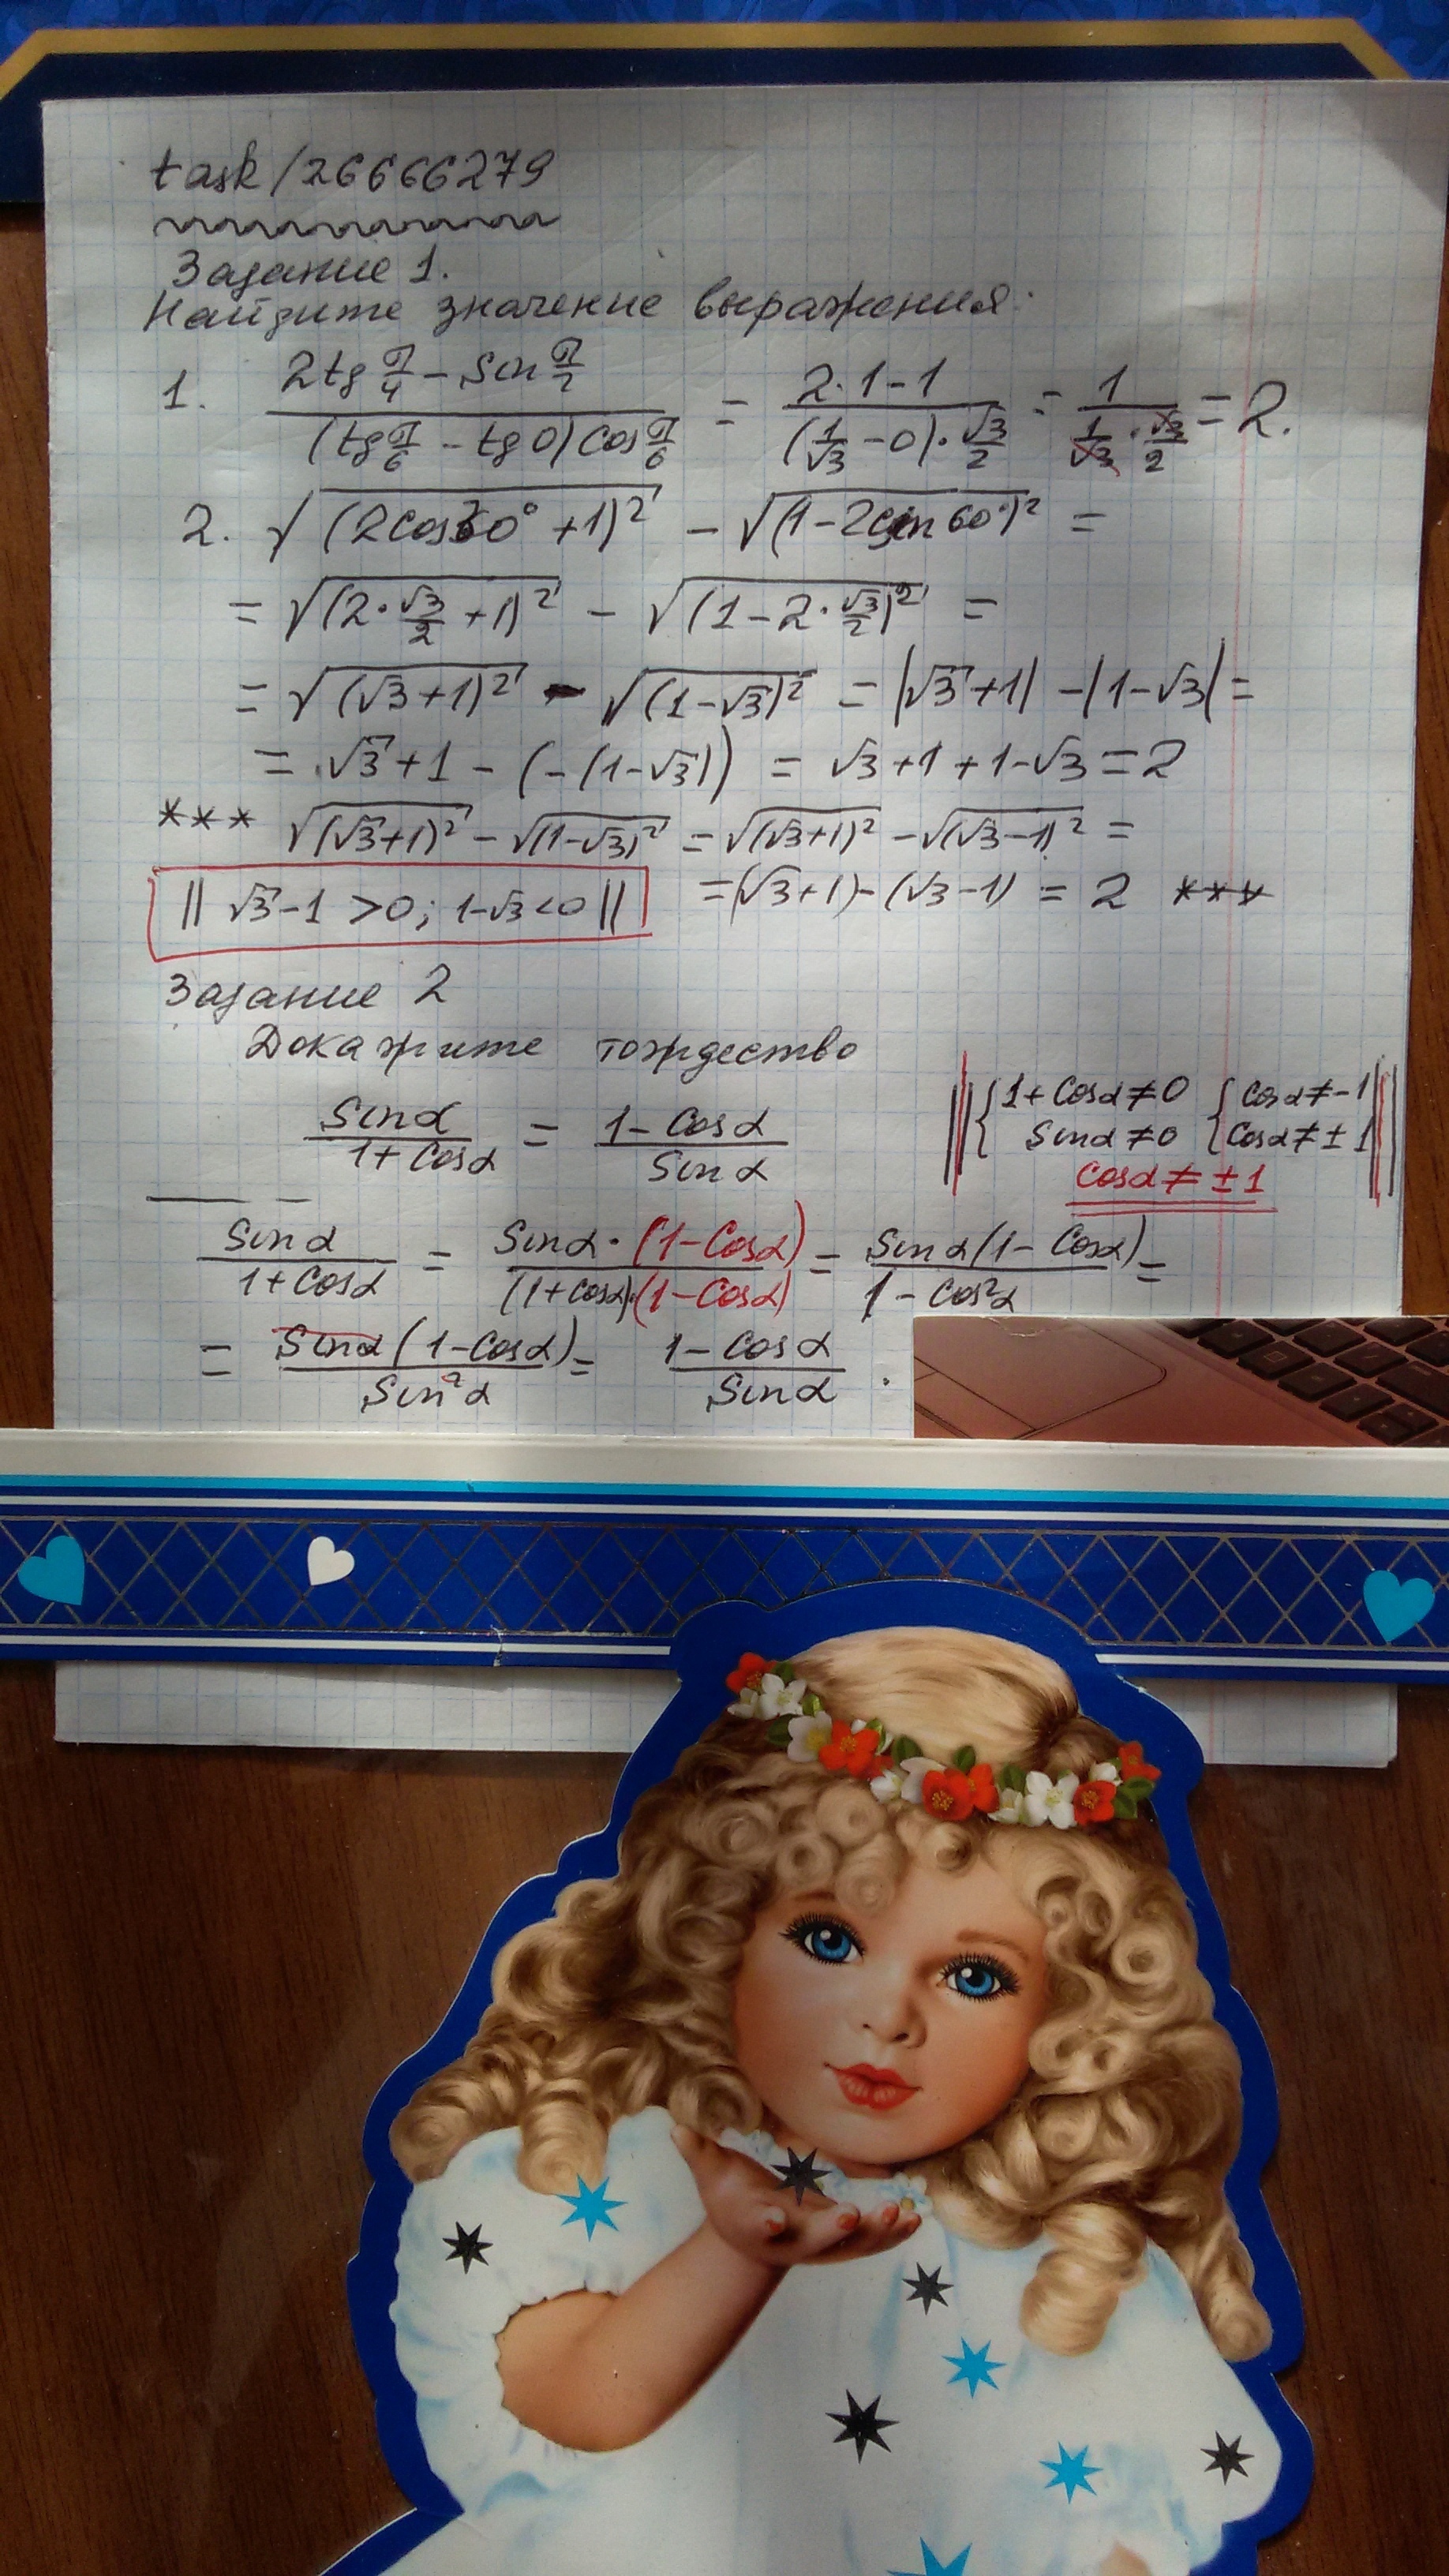 task/26666279
Задание 1.
Найдите значение выражения:
1. (2tg π/4 - Sin π/2)/((tg π/6 - tg 0) Cos π/6) = (2·1-1)/((1/√3 - 0)·√3/2) = 1/(1/√3 · √3/2) = 2.
2. √(2cos30° +1)² - √(1-2sin60°)² =
= √(2·√3/2 +1)² - √(1-2·√3/2)² =
= √(√3+1)² - √(1-√3)² = |√3+1| -|1-√3| =
= √3+1 - (-(1-√3)) = √3+1+1-√3 = 2
*** √(√3+1)² - √(1-√3)² = √(√3+1)² - √(√3-1)² =
|| √3-1 >0; 1-√3<0 || = (√3+1) - (√3-1) = 2 ***
Задание 2
Докажите тождество
Sinα/(1+Cosα) = (1-Cosα)/Sinα
|| { 1+Cosα≠0 { Cosα≠-1 ||
Sinα≠0 Cosα≠±1
Cosα≠±1
Sinα/(1+Cosα) = Sinα·(1-Cosα)/((1+Cosα)·(1-Cosα)) = Sinα(1-Cosα)/(1-Cos²α) =
= Sinα(1-Cosα)/Sin²α = (1-Cosα)/Sinα .